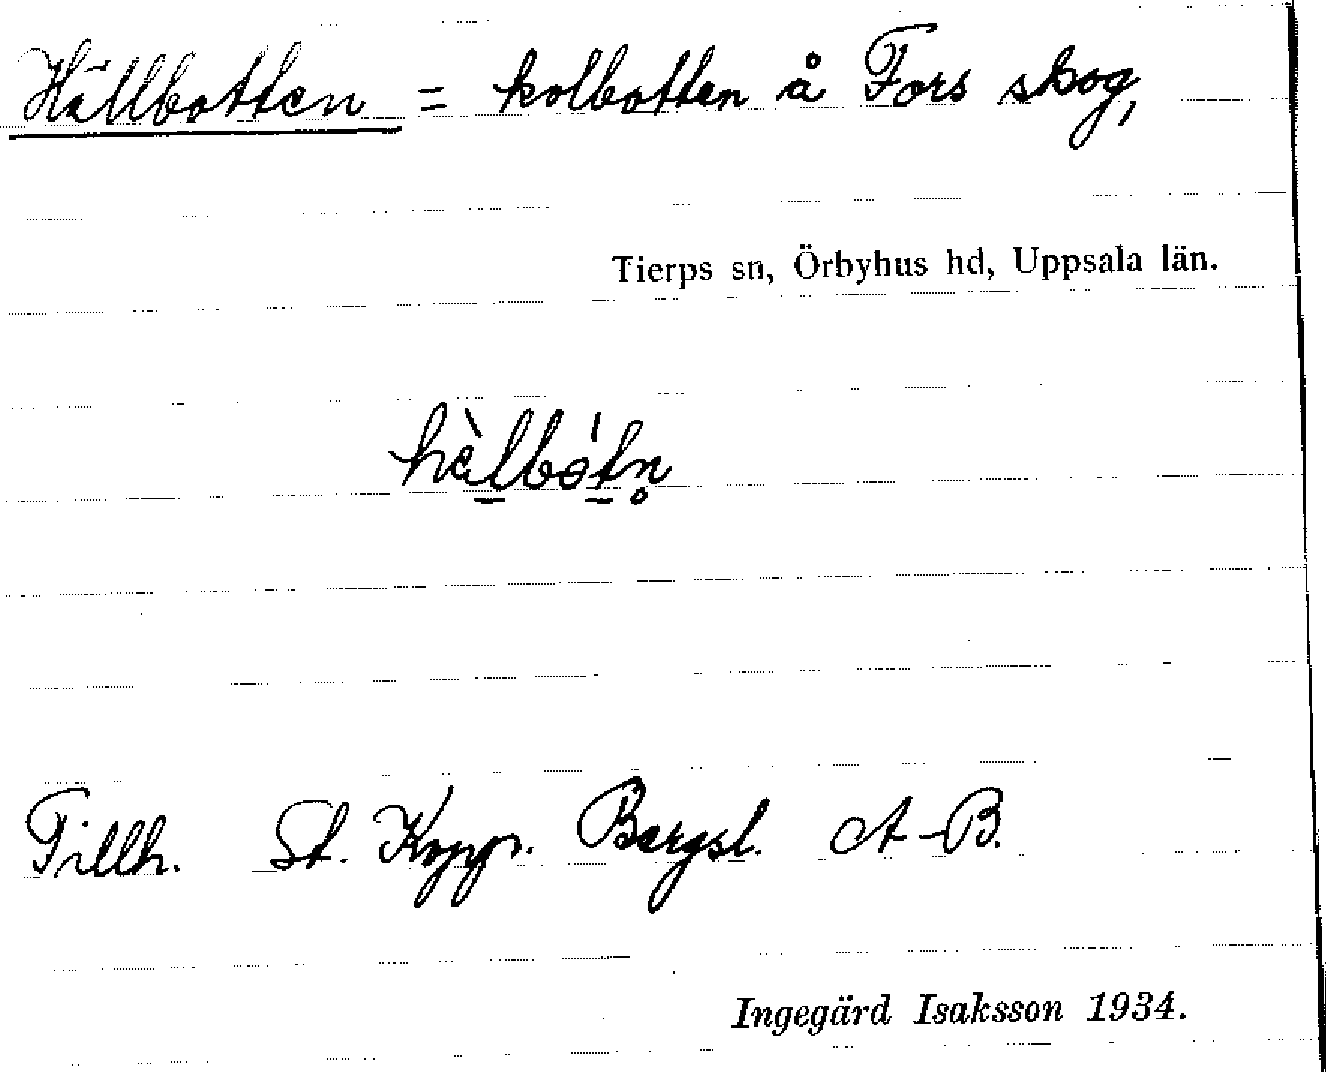 Hällbotten = kolbotten å Fors skog,
Tierps sn, Örbyhus hd, Uppsala län.
hä̀l̠bót̠n̥
Tillh. St. Kopp. Bergsl. A-B.
Ingegärd Isaksson 1934.